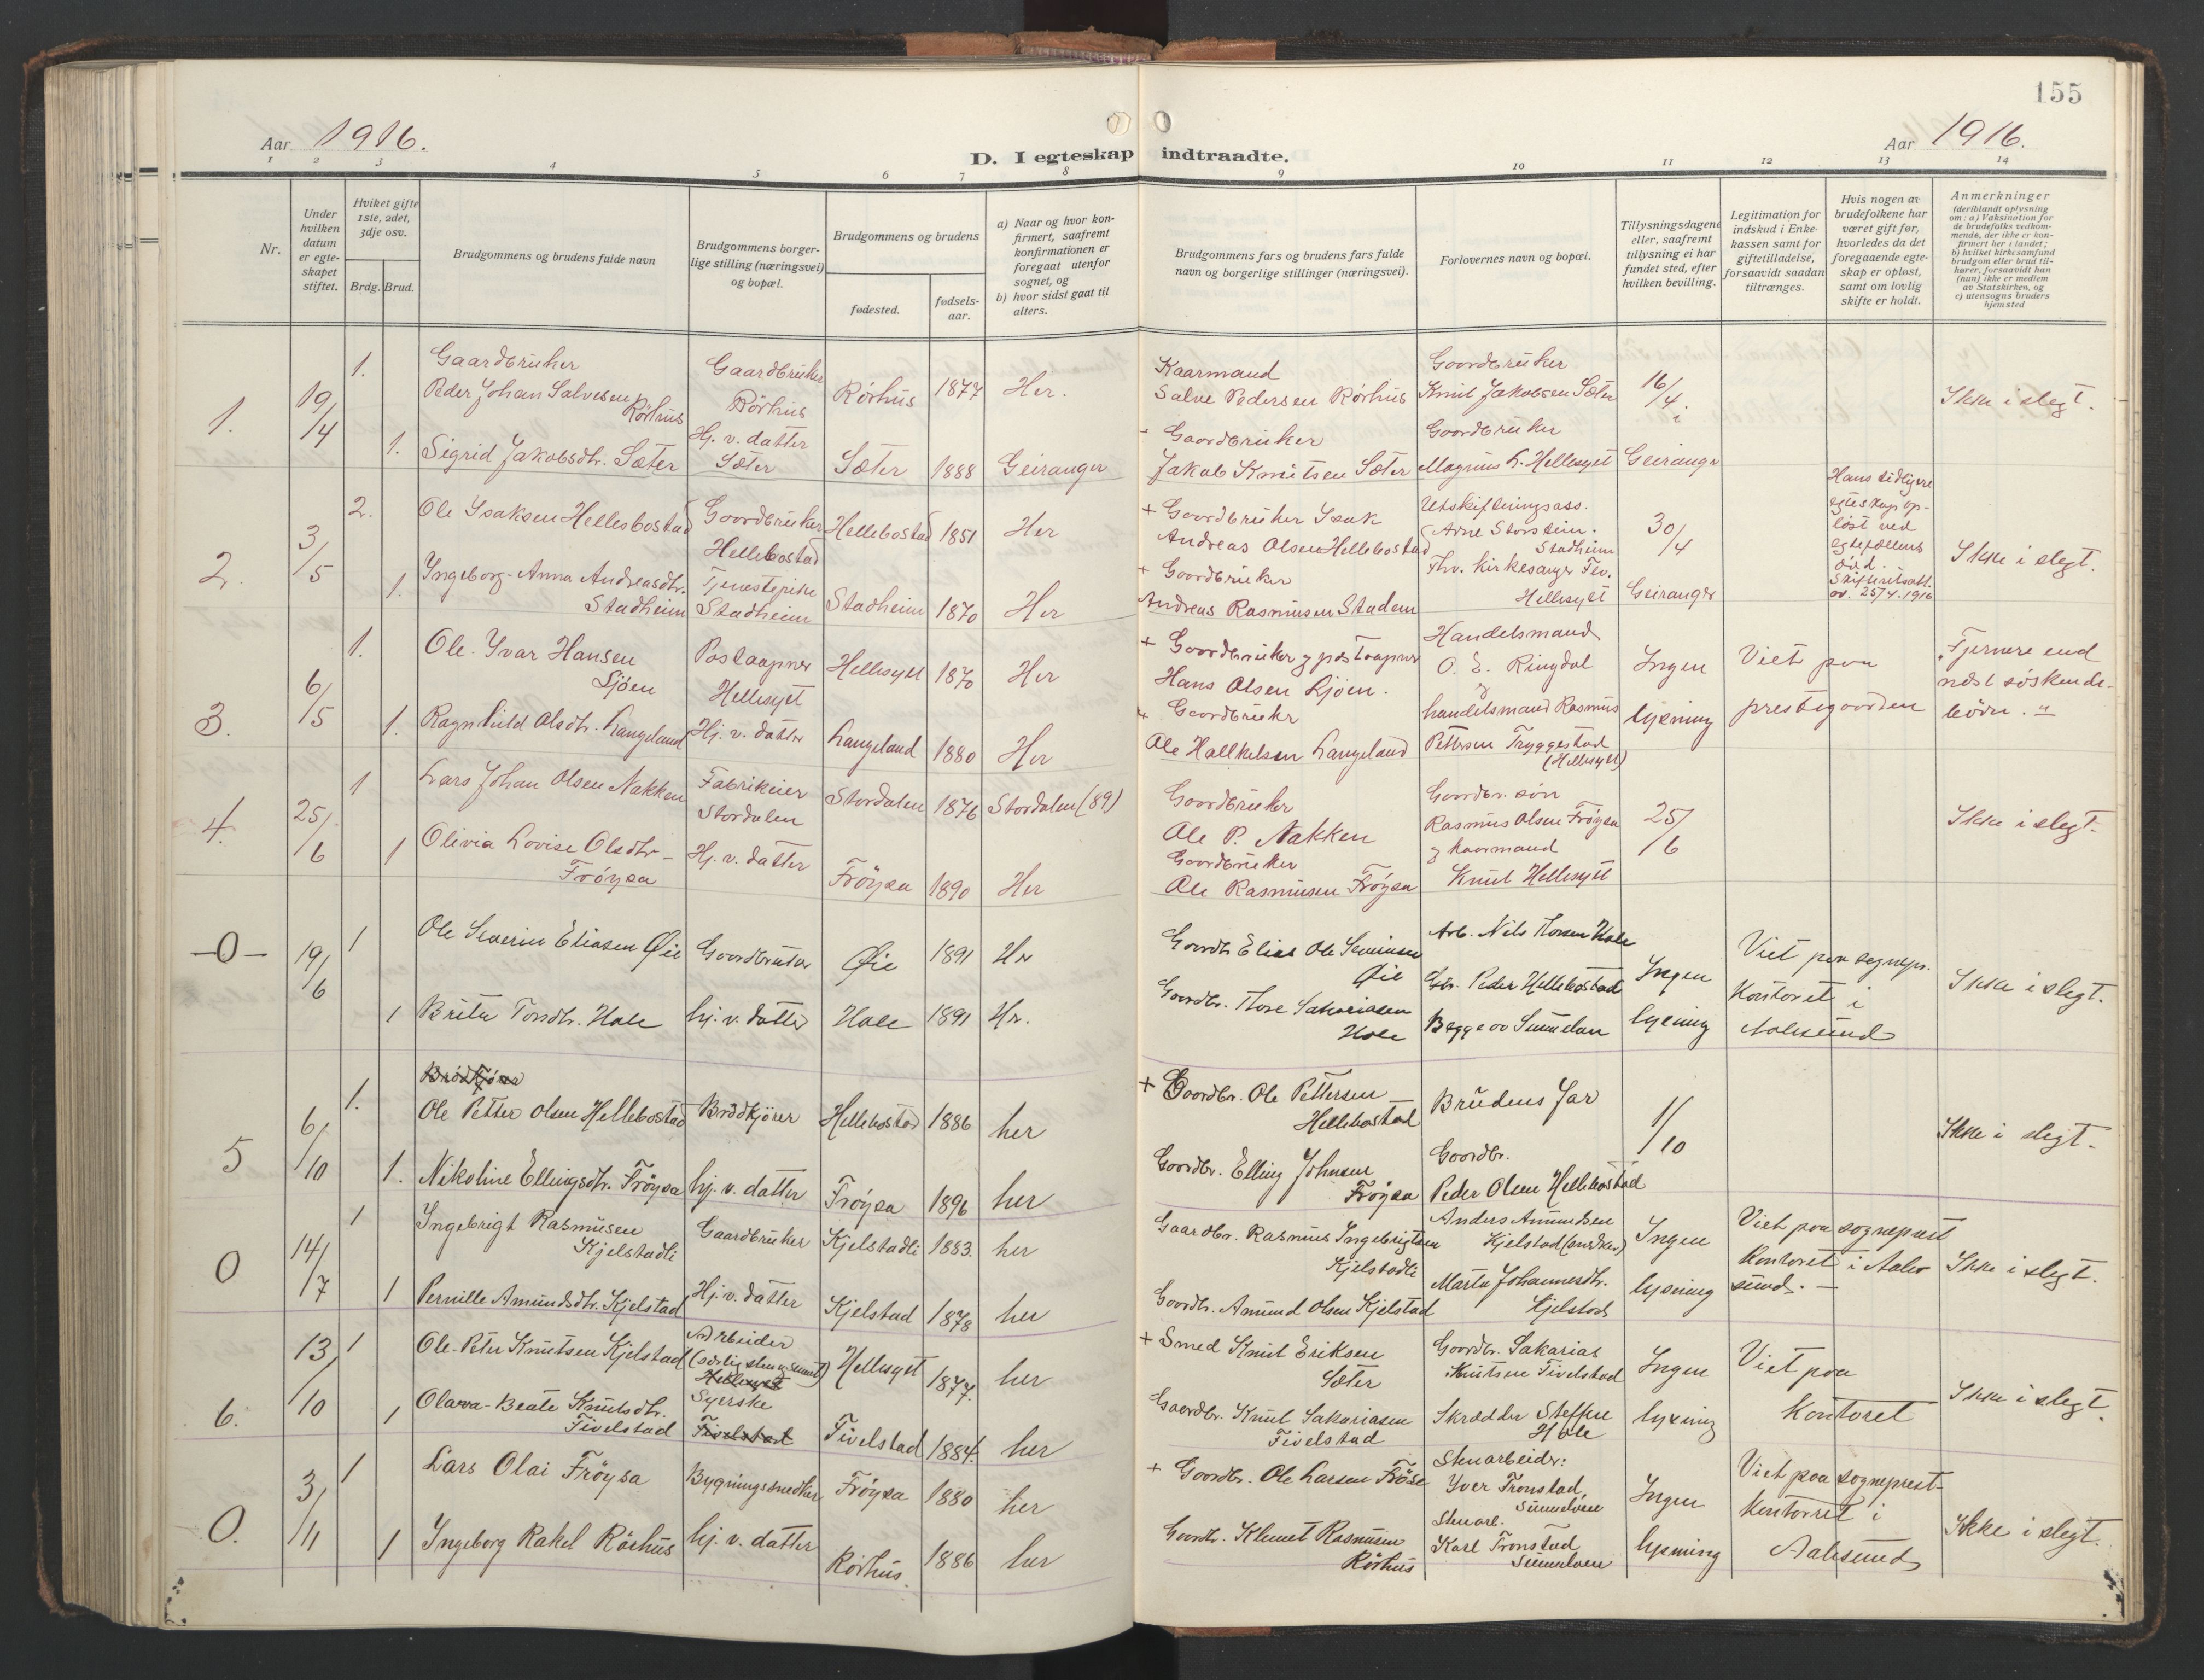 155
Aar 1916.
D. I egteskap indtraadte.
Aar 1916.
1 2 3 4 5 6 7 8 9 10 11 12 13 14
Nr.
Under hvilken datum er egteskapet stiftet.
Hviket gifte 1ste, 2det, 3dje osv.
Brdg. Brud.
Brudgommens og brudens fulde navn
Brudgommens borgerlige stilling (næringsvei) og bopæl.
Brudgommens og brudens
fødested.
fødselsaar.
a) Naar og hvor konfirmert, saafremt konfirmationen er foregaat utenfor sognet, og
b) hvor sidst gaat til alters.
Brudgommens fars og brudens fars fulde navn og borgerlige stillinger (næringsvei).
Forlovernes navn og bopæl.
Tillysningsdagene eller, saafremt tillysning ei har fundet sted, efter hvilken bevilling.
Legitimation for indskud i Enkekassen samt for giftetilladelse, forsaavidt saadan tiltrænges.
Hvis nogen av brudefolkene har været gift før, hvorledes da det foregaaende egteskap er opløst, samt om lovlig skifte er holdt.
Anmerkninger (deriblandt oplysning om: a) Vaksination for de brudefolks vedkommende, der ikke er konfirmert her i landet; b) hvilket kirkesamfund brudgom eller brud tilhører, forsaavidt han (hun) ikke er medlem av Statskirken, og c) utensogns bruders hjemsted
1. 19/4 1. Gaardbruker Peder Johan Salvesen Rørhus Gaardbruker Rørhus Rørhus 1877 Her. Kaarmand Salve Pedersen Rørhus Goordbruker Knut Jakobsen Sæter 16/4 i Ikke i slegt.
1. Sigrid Jakobsdtr. Sæter Hj. v. datter Sæter Sæter 1888 Geiranger Goordbruker Jakob Knutsen Sæter Goordbruker Magnus L. Hellesylt Geiranger
2. 3/5 2. Ole Isaksen Hellesbostad Goordbruker Hellebostad Hellebostad 1851 Her + Goordbruker Isak Andreas Olsen Hellebostad Utskiftningsass. Arne Storstein. Stadheim 30/4 Hans tidligere egteskap opløst ved egtefællens død. Skifteretsatt. av 25/4. 1916 Ikke i slegt.
1. Ingeborg-Anna Andreasdtr. Stadheim Tjenestepike Stadheim Stadheim 1870 Her + Goordbruker Andreas Rasmusen Stadem Fhv. kirkesanger Hellesylt Geiranger
3. 6/5 1. Ole-Ivar Hansen Ljøen Postaapner Hellesylt Hellesylt 1870 Her + Goordbruker og postaapner Hans Olsen Ljøen. Handelsmand O. E. Ringdal og Ingen Viet paa "Fjernere end næst søskende-
1. Ragnhild Olsdtr. Langeland Hj. v. datter Langeland 1880 Her Goordbruker Ole Hallkelsen Langeland handelsmand Rasmus Pettersen Tryggestad (Hellesylt) lysning prestegaarden børn."
4. 25/6 1 Lars Johan Olsen Nakken Fabrikeier Stordalen Stordalen 1876 Stordalen (89) Goordbruker Ole P. Nakken Goordbr. søn Rasmus Olsen Frøysa 25/6 Ikke i slegt.
1 Olivia Lovise Olsdtr- Frøysa Hj. v. datter Frøysa 1890 Her Goordbruker Ole Rasmusen Frøysa og kaarmand Knut Hellesylt
-0- 19/6 1 Ole Severin Eliasen Øie Goordbruker Øie 1891 Her Goordb Elias Ole Severinsen Øie Arb. Nils Toresen Hole Ingen Viet paa sognepr. Ikke i slegt.
1 Brita Toresdtr. Hole hj. v. datter Hole 1891 Her. Goordbr. Thore Sakariasen Hole Gbr. Peder Hellebostad Begge av Sunnelven lysning Kontoret i Aalesund
5 6/10 1. Ole Petter Olsen Hellebostad Brødkjører Hellebostad 1886 her + Goordbr. Ole Pettersen- Hellebostad Brudens far 1/10 Ikke i slegt.
1. Nikoline Ellingsdtr. Frøysa hj. v. datter Frøysa 1896 her Goordbr. Elling Johnsen Frøysa Goordbr. Peder Olsen Hellebostad
0 14/7 1 Ingebrigt Rasmusen Kjelstadli Gaardbruker Kjelstadli 1883. her Gaardbr. Rasmus Ingebrigtsen Kjelstadli Anders Amundsen Kjelstad Ingen Viet paa sogneprest Ikke i slegt.
1 Pernille Amundsdtr. Kjelstad Hj. v. datter Kjelstad 1878 her Goordbr. Amund Olsen Kjelstad Marta Johannesdtr. Kjelstad lysning Kontoret i Aalesund.-
6. 13/10 1 Ole-Peter Knutsen Kjelstad Arbeider Hellesylt Hellesylt 1877. her + Smed Knut Eriksen Sæter Goordbr. Sakarias Knutsen Fivelstad Ingen Viet paa Ikke i slegt.
1 Olava-Beate Knutsdtr. Fivelstad Syerske Fivelstad Fivelstad 1884. her Gaardbr. Knut Sakariasen Fivelstad Skrædder Steffen Hole lysning Kontoret
0. 3/11 1 Lars Olai Frøysa Bygningssnedker Frøysa 1880 her + Goordbr. Ole Larsen Frøise Stenarbeider: Iver Tronstad, Sunnelven Ingen Viet paa sogneprest- Ikke i slegt.
1 Ingeborg Rakel Rørhus hj. v. datter Rørhus. 1886 her Goordbr. Klemet Rasmusen Rørhus Stenarb. Karl Tronstad Sunnelven lysning Kontoret i Aalesund